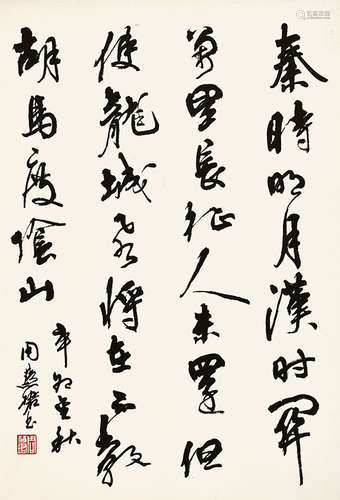 秦時明月漢时關
萬里長征人未還但
使龍城飛將在不教
胡馬度陰山
辛卯金秋
周慧珺书